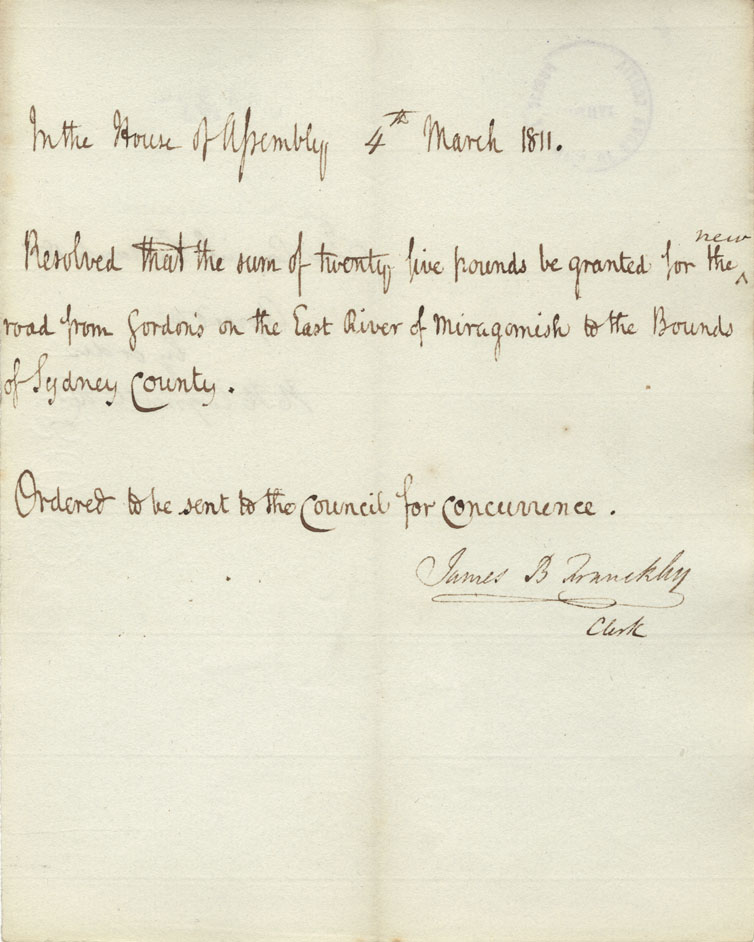 In the House of Assembly, 4th March 1811.
Resolved that the sum of twenty five pounds be granted for the ^ new
road from Gordon's on the East River of Miragomish to the Bounds
of Sydney County.
Ordered to be sent to the Council for concurrence.
James B Franckly
Clerk